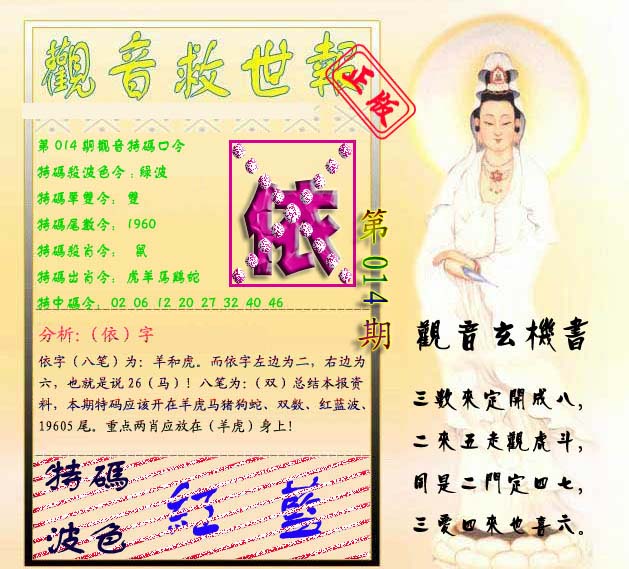 觀音救世報
正版
第014期觀音特碼口令
特碼殺波色令:綠波
特碼單雙令: 雙
特碼尾數令: 1960
特碼殺肖令: 鼠
特碼出肖令: 虎羊馬鷄蛇
特中碼令: 02 06 12 20 27 32 40 46
依
第014期
分析:(依)字
依字(八笔)为:羊和虎。而依字左边为二,右边为
六,也就是说26(马)!八笔为:(双)总结本报资
料,本期特码应该开在羊虎马猪狗蛇、双数、红蓝波、
19605尾。重点两肖应放在(羊虎)身上!
特碼
波色
紅 藍
觀音玄機書
三數來定開成八,
二來五走觀虎斗,
同是二門定四七,
三愛四來也喜六。